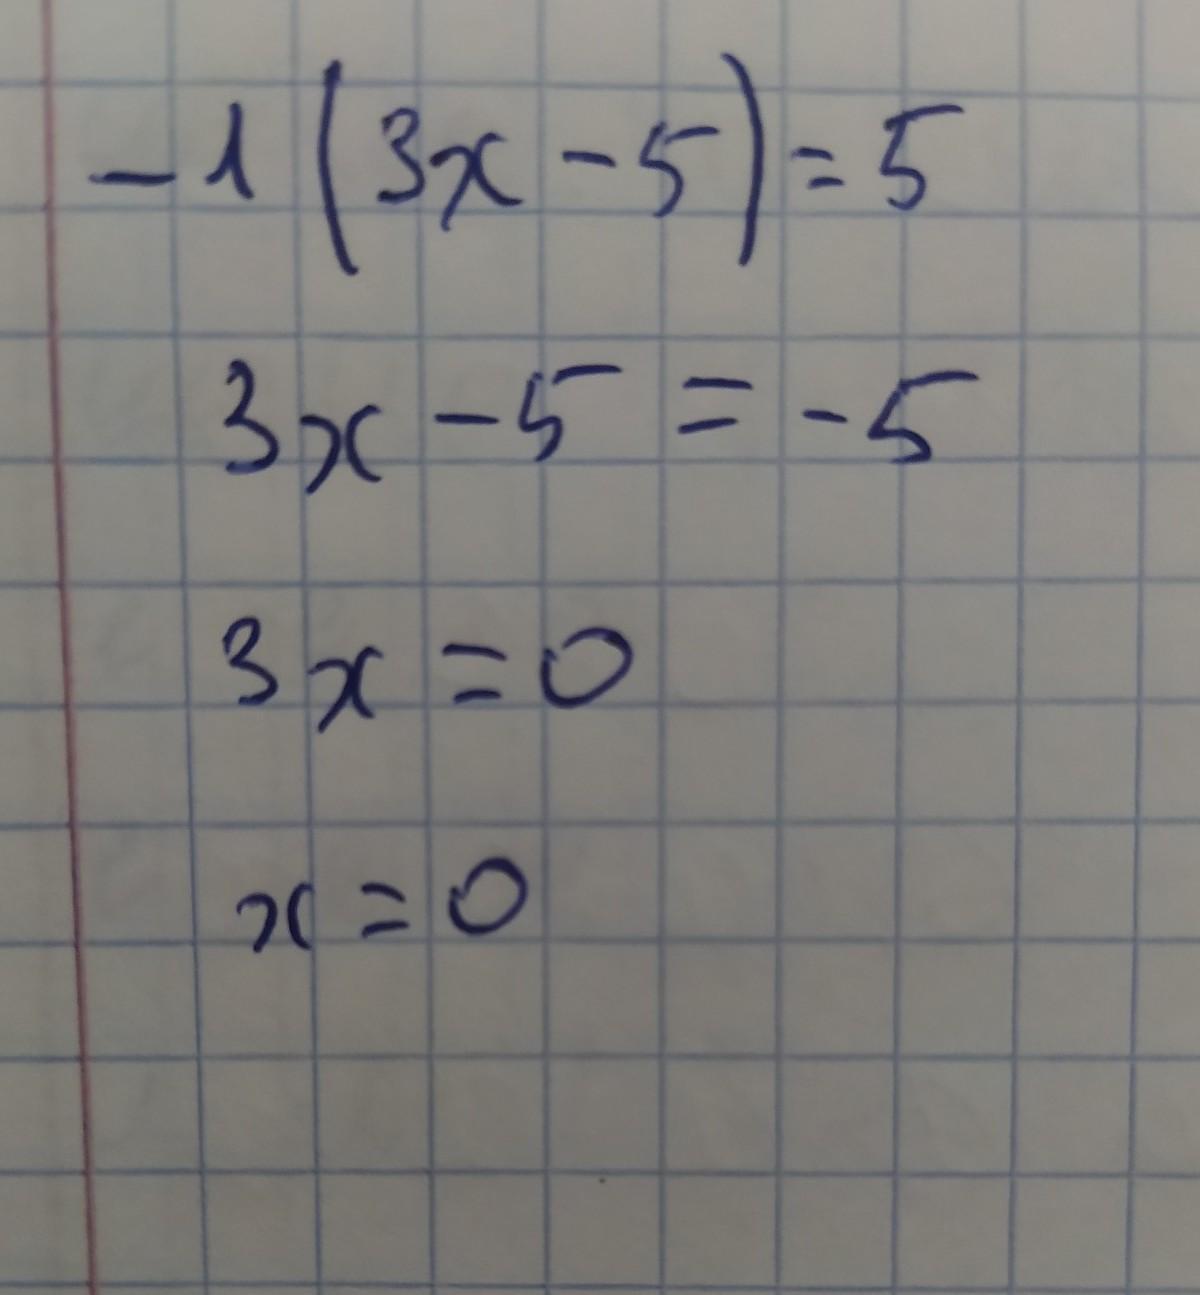 -1(3x-5)=5
3x-5=-5
3x=0
x=0